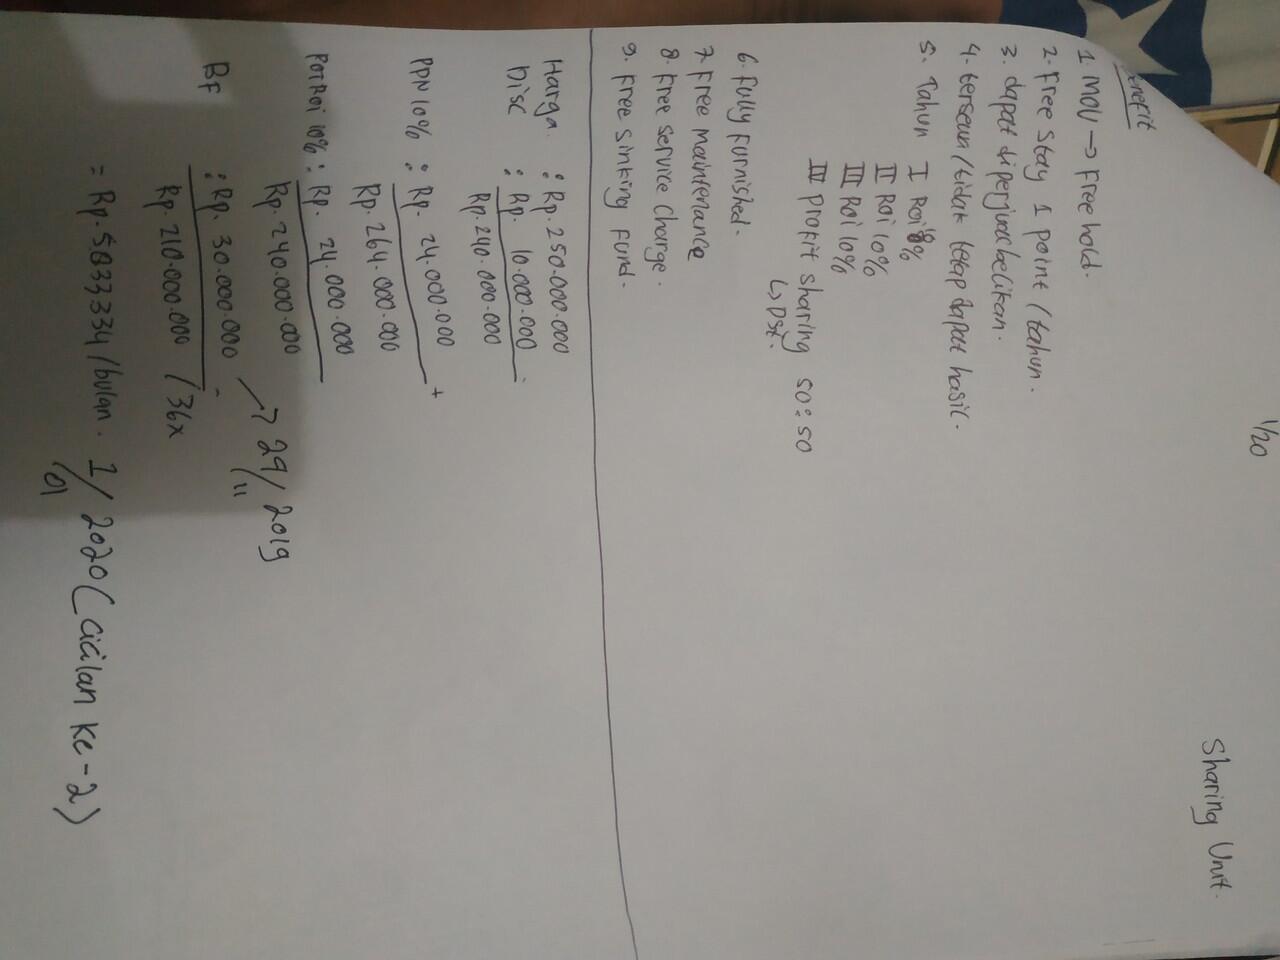 1/20
Sharing Unit.
Benefit
1 MOU → Free hold.
2. Free Stay 1 point / tahun.
3. dapat diperjual belikan.
4. tersewa/tidak tetap dapat hasil.
5. Tahun I Roi 8%
II Roi 10%
III Roi 10%
III Profit Sharing 50:50
↳ Dst.
6. Fully Furnished.
7. Free maintenance
8. Free Service Charge.
9. Free Sinking Fund.
Harga : Rp. 250.000.000
Disc : Rp. 10.000.000 -
Rp. 240.000.000
PPN 10% : Rp. 24.000.000 +
Rp. 264.000.000
Pot Roi 10% : Rp. 24.000.000
Rp. 240.000.000
BF : Rp. 30.000.000 - → 29/11 2019
Rp. 210.000.000 / 36x
= Rp. 5833.334/bulan. 1/01 2020 (Cicilan ke-2)